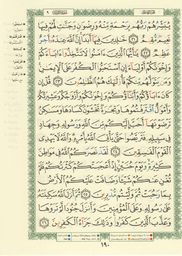 يُبَشِّرُهُمْ رَبُّهُم بِرَحْمَةٍ مِّنْهُ وَرِضْوَٰنٍ وَجَنَّٰتٍ لَّهُمْ فِيهَا
نَعِيمٌ مُّقِيمٌ ٢١ خَٰلِدِينَ فِيهَآ أَبَدًا إِنَّ ٱللَّهَ عِندَهُۥٓ أَجْرٌ
عَظِيمٌ ٢٢ يَٰٓأَيُّهَا ٱلَّذِينَ ءَامَنُوا۟ لَا تَتَّخِذُوٓا۟ ءَابَآءَكُمْ
وَإِخْوَٰنَكُمْ أَوْلِيَآءَ إِنِ ٱسْتَحَبُّوا۟ ٱلْكُفْرَ عَلَى ٱلْإِيمَٰنِ
وَمَن يَتَوَلَّهُم مِّنكُمْ فَأُو۟لَٰٓئِكَ هُمُ ٱلظَّٰلِمُونَ ٢٣ قُلْ إِن كَانَ
ءَابَآؤُكُمْ وَأَبْنَآؤُكُمْ وَإِخْوَٰنُكُمْ وَأَزْوَٰجُكُمْ وَعَشِيرَتُكُمْ
وَأَمْوَٰلٌ ٱقْتَرَفْتُمُوهَا وَتِجَٰرَةٌ تَخْشَوْنَ كَسَادَهَا وَمَسَٰكِنُ
تَرْضَوْنَهَآ أَحَبَّ إِلَيْكُم مِّنَ ٱللَّهِ وَرَسُولِهِۦ وَجِهَادٍ
فِى سَبِيلِهِۦ فَتَرَبَّصُوا۟ حَتَّىٰ يَأْتِىَ ٱللَّهُ بِأَمْرِهِۦ وَٱللَّهُ لَا يَهْدِى
ٱلْقَوْمَ ٱلْفَٰسِقِينَ ٢٤ لَقَدْ نَصَرَكُمُ ٱللَّهُ فِى مَوَاطِنَ
كَثِيرَةٍ وَيَوْمَ حُنَيْنٍ إِذْ أَعْجَبَتْكُمْ كَثْرَتُكُمْ فَلَمْ
تُغْنِ عَنكُمْ شَيْـًٔا وَضَاقَتْ عَلَيْكُمُ ٱلْأَرْضُ
بِمَا رَحُبَتْ ثُمَّ وَلَّيْتُم مُّدْبِرِينَ ٢٥ ثُمَّ أَنزَلَ ٱللَّهُ سَكِينَتَهُۥ
عَلَىٰ رَسُولِهِۦ وَعَلَى ٱلْمُؤْمِنِينَ وَأَنزَلَ جُنُودًا لَّمْ تَرَوْهَا
وَعَذَّبَ ٱلَّذِينَ كَفَرُوا۟ وَذَٰلِكَ جَزَآءُ ٱلْكَٰفِرِينَ ٢٦
١٩٠